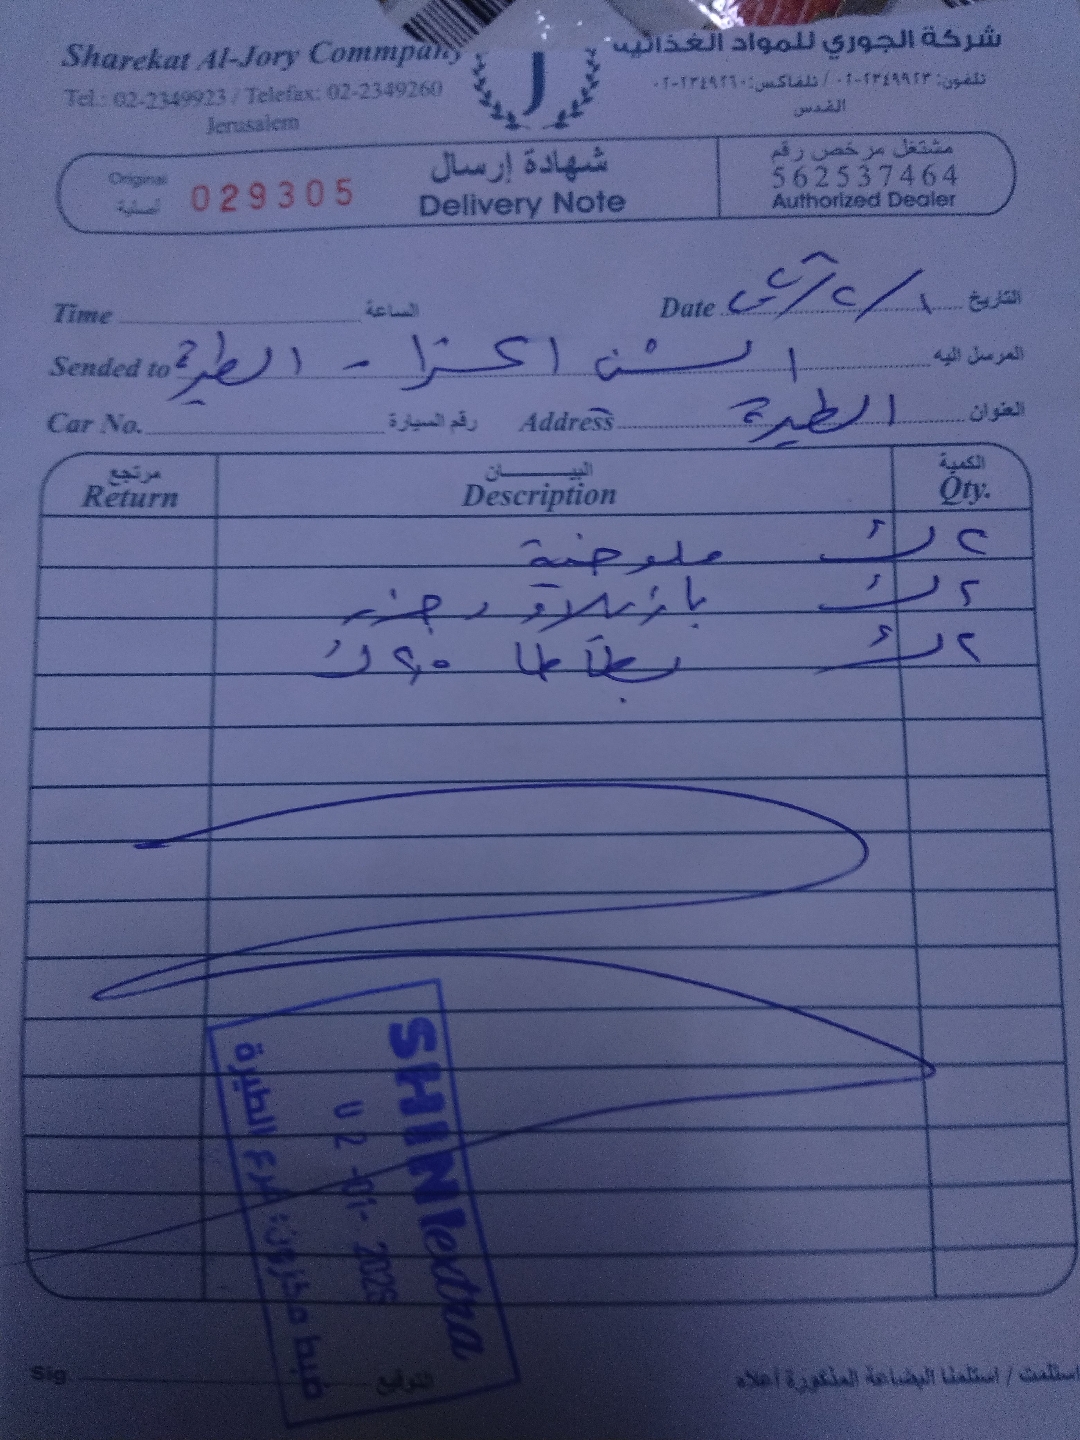 Sharekat Al-Jory Commpany
شركة الجوري للمواد الغذائية
Tel.: 02-2349923 / Telefax: 02-2349260
تلفون: ٢٣٤٩٩٢٣-٠٢ / تلفاكس: ٢٣٤٩٢٦٠-٠٢
Jerusalem
القدس
J
Original
أصلية
029305
شهادة إرسال
Delivery Note
مشتغل مرخص رقم
562537464
Authorized Dealer
Time الساعة
Date التاريخ
Sended to الشني اكسترا - الطيرة المرسل اليه
Car No. رقم السيارة Address الطيرة العنوان
مرتجع البيـــــــان الكمية
Return Description Qty.
٢ ك ملوخية
٢ ك بازيلاء و جزر
٢ ك بطاطا
SHINI extra
02-01-2026
ضبط مخزون: فرع الطيرة
Sig التوقيع
استلمت / استلمنا البضاعة المذكورة أعلاه